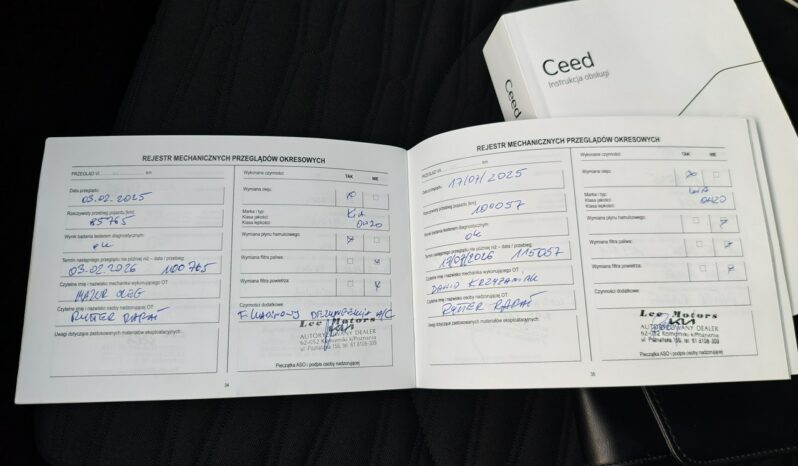 Ceed
Instrukcja obsługi
Ceed
REJESTR MECHANICZNYCH PRZEGLĄDÓW OKRESOWYCH
PRZEGLĄD VI km
Data przeglądu:
03.02.2025
Rzeczywisty przebieg pojazdu [km]:
85765
Wynik badania testerem diagnostycznym:
ok
Termin następnego przeglądu nie później niż – data / przebieg:
03.02.2026 100765
Czytelne imię i nazwisko mechanika wykonującego OT
MAZUR OLEG
Czytelne imię i nazwisko osoby nadzorującej OT
Uwagi dotyczące zastosowanych materiałów eksploatacyjnych:
34
Wykonane czynności: TAK NIE
Wymiana oleju:
Marka / typ:
Klasa jakości:
Klasa lepkości:
KIA
0W20
Wymiana płynu hamulcowego:
Wymiana filtra paliwa:
Wymiana filtra powietrza:
Czynności dodatkowe:
F. kabinowy A/C
Lee Motors
AUTORYZOWANY DEALER
62-052 Komorniki k/Poznania
ul. Poznańska 159, tel. 61 8108-309
Pieczątka ASO i podpis osoby nadzorującej
REJESTR MECHANICZNYCH PRZEGLĄDÓW OKRESOWYCH
km
Data przeglądu:
17/07/2025
Rzeczywisty przebieg pojazdu [km]:
100057
Wynik badania testerem diagnostycznym:
ok
Termin następnego przeglądu nie później niż – data / przebieg:
17/07/2026 115057
Czytelne imię i nazwisko mechanika wykonującego OT
DAWID KRZYŻANIAK
Czytelne imię i nazwisko osoby nadzorującej OT
Uwagi dotyczące zastosowanych materiałów eksploatacyjnych:
35
Wykonane czynności: TAK NIE
Wymiana oleju:
Marka / typ:
Klasa jakości:
Klasa lepkości:
KIA
0W20
Wymiana płynu hamulcowego:
Wymiana filtra paliwa:
Wymiana filtra powietrza:
Czynności dodatkowe:
Lee Motors
AUTORYZOWANY DEALER
62-052 Komorniki k/Poznania
ul. Poznańska 159, tel. 61 8108-309
Pieczątka ASO i podpis osoby nadzorującej